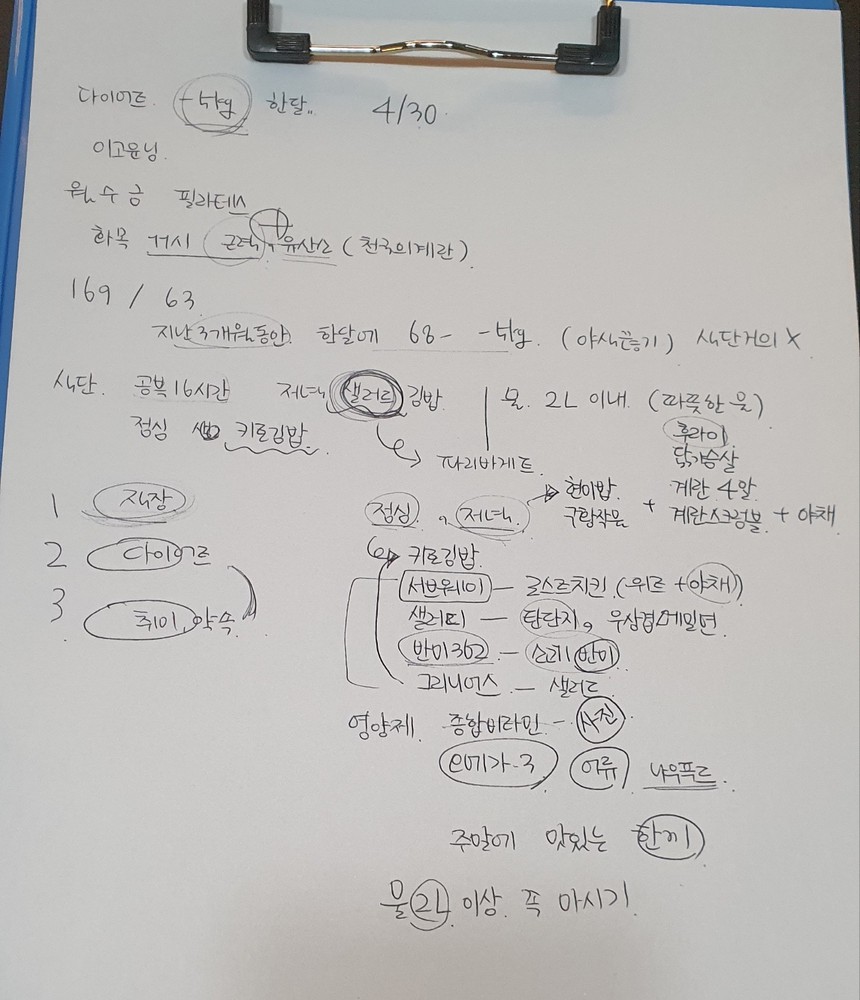 다이어트 -5kg 한달.. 4/30
이고운님
월 수 금 필라테스
화목 7시 근력, 유산소 (천국의계단)
169 / 63
지난 3개월동안 한달에 68- -5kg. (야식끊기) 식단거의 X
식단. 공복 16시간 저녁 샐러드 김밥 물 2L 이내 (따뜻한 물)
정심 키토김밥 파리바게트
1 직장
2 다이어트
3 취미, 약속
점심, 저녁 현미밥 + 후라이 닭가슴살 계란 4알 계란스크럼블 + 야채
키토김밥
서브웨이 - 로스트치킨 (-위트 + 야채)
샐러디 - 탄단지, 우삼겹메밀면
반미362 - 반미
그리너언스 - 샐러드
영양제 종합비타민 - 사진
오메가-3 어류 나우푸드
주말에 맛있는 한끼
물 2L 이상 꼭 마시기